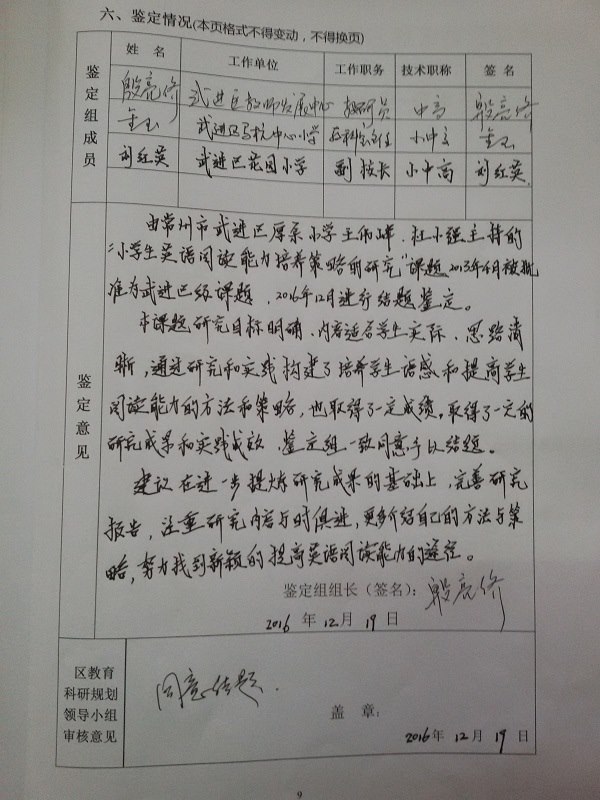 六、鉴定情况(本页格式不得变动，不得换页)
鉴定组成员
姓 名 工作单位 工作职务 技术职称 签 名
殷亮侨 武进区教师发展中心 教研员 中高 殷亮侨
武进区马杭中心小学
刘红英 武进区花园小学 副校长 小中高 刘红英
鉴定意见
由常州市武进区厚余小学 杜小强主持的
"小学生英语阅读能力培养策略的研究"课题2013年 月被批
准为武进区级课题，2016年12月进行结题鉴定。
本课题研究目标明确，内容适合学生实际，思路清
晰，通过研究和实践构建了培养学生语感和提高学生
阅读能力的方法和策略，也取得了一定成绩。取得了一定的
研究成果和实践成效，鉴定组一致同意予以结题。
建议在进一步提炼研究成果的基础上，完善研究
报告，注重研究内容与时俱进，更多介绍自己的方法与策
略，努力找到新颖的提高英语阅读能力的途径。
鉴定组组长（签名）：殷亮侨
2016 年 12 月 19 日
区教育
科研规划
领导小组
审核意见
同意结题.
盖 章：
2016 年 12 月 19 日
9